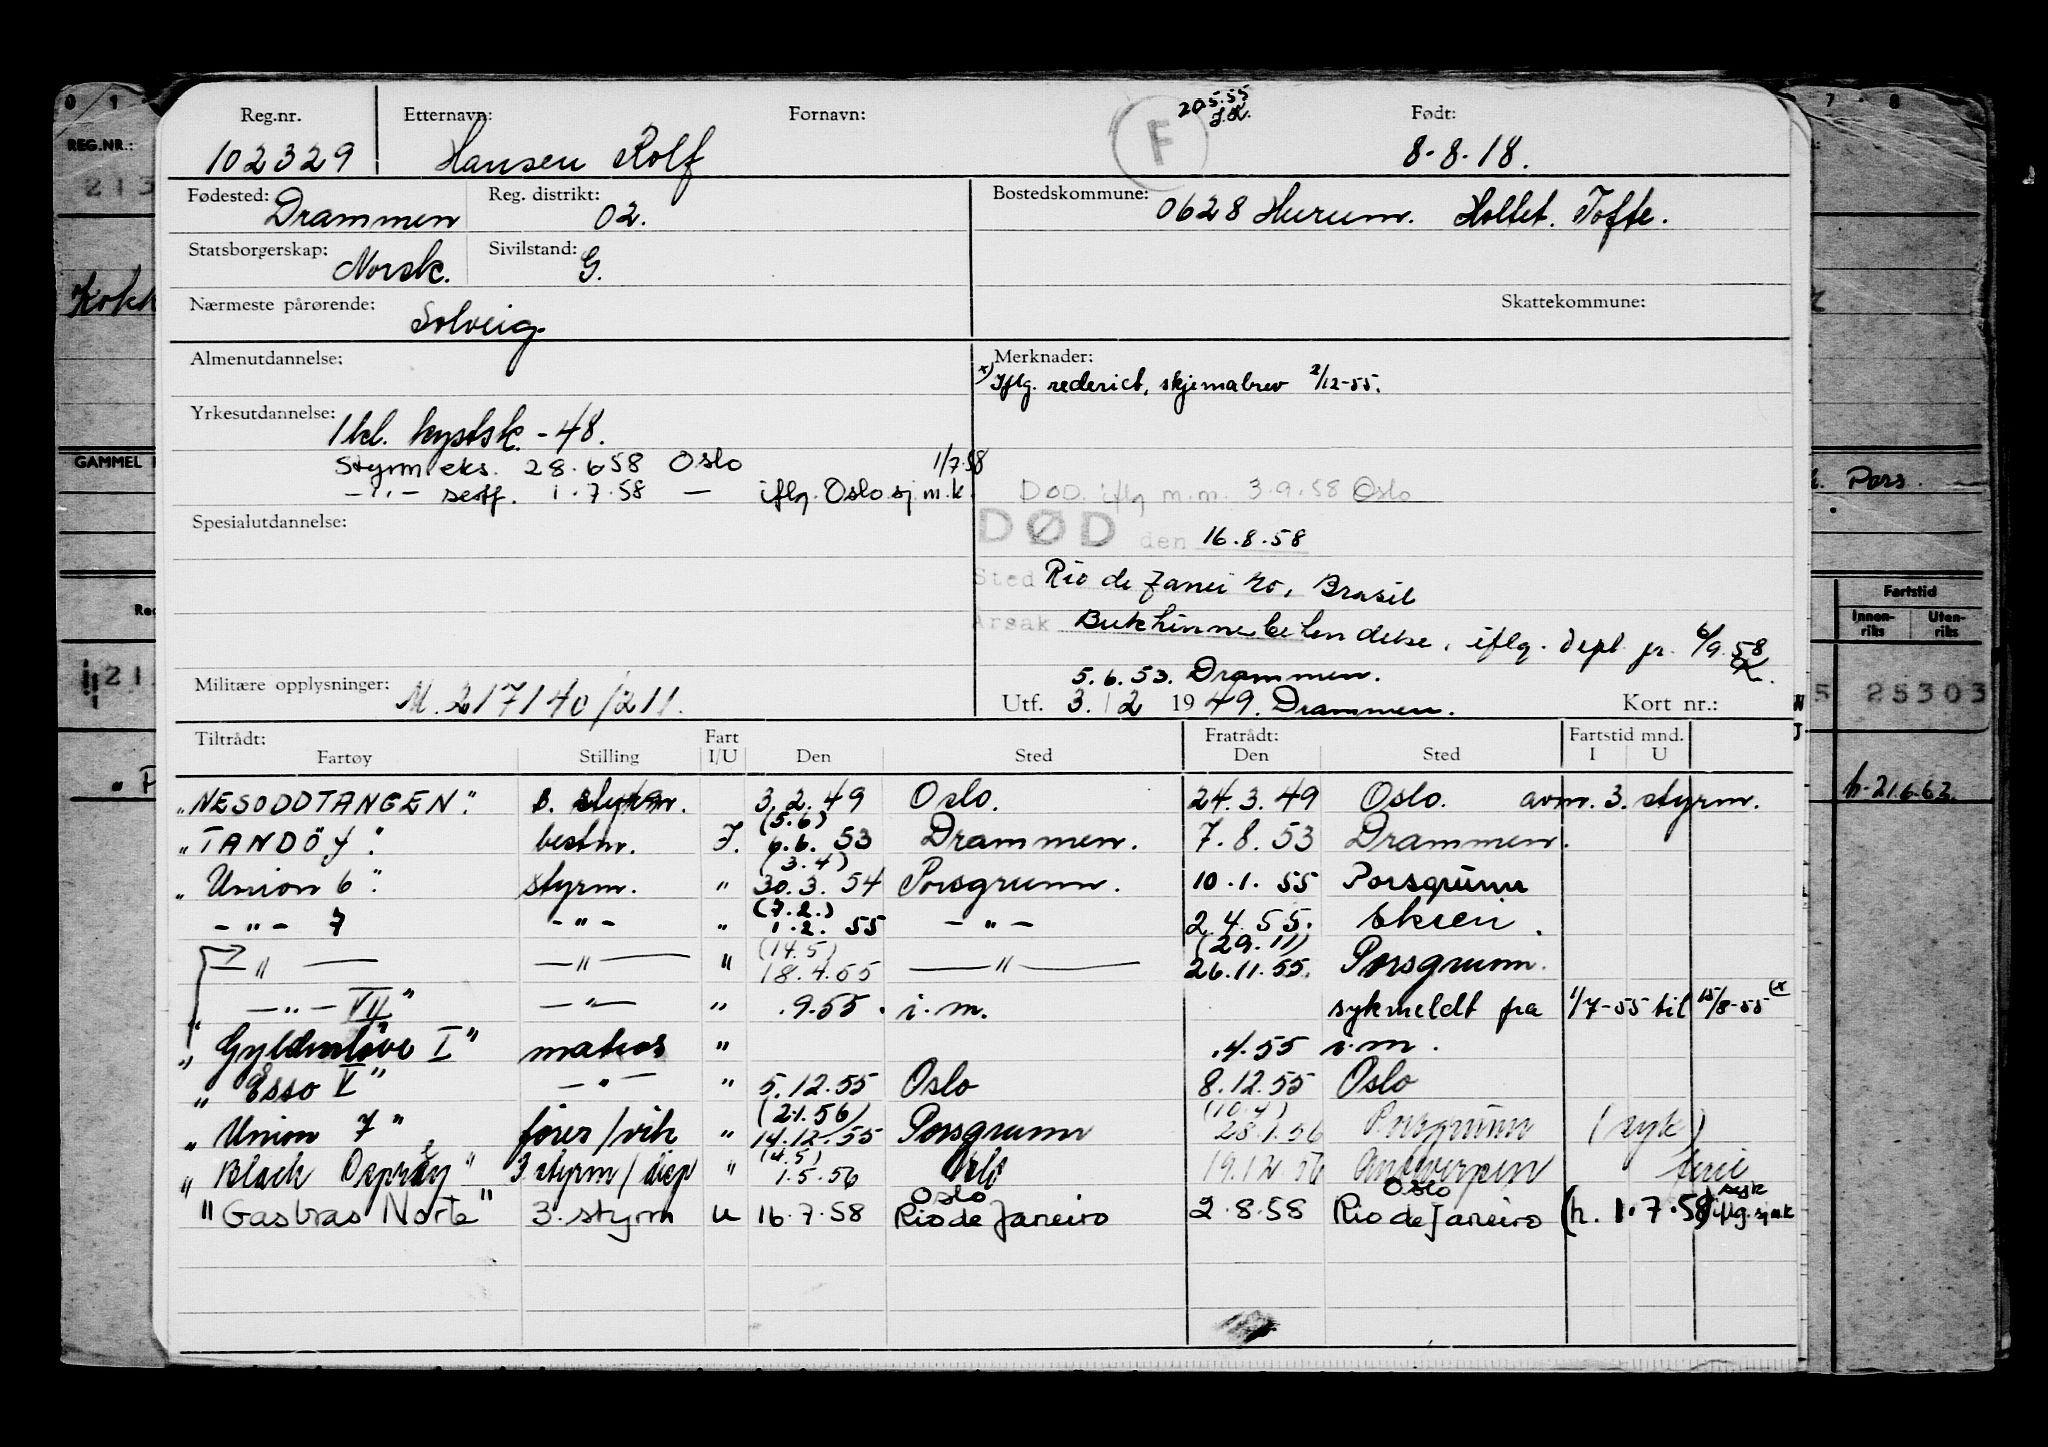 Reg.nr. Etternavn: Fornavn: F 20.5.55 Født:
102329 Hansen Rolf 8.8.18.
Fødested: Drammen Reg. distrikt: 02. Bostedskommune: 0628 Hurum. Holtet. Tofte.
Statsborgerskap: Norsk. Sivilstand: G.
Nærmeste pårørende: Solveig. Skattekommune:
Almenutdannelse: Merknader:
x) Iflg. rederiet, skjemabrev 2/12-55.
Yrkesutdannelse: 1 kl. kystsk. -48.
Styrm. eks. 28.6.58 Oslo 1/7.58
-"- sertf. 1.7.58 — iflg. Oslo sj.m.k.
DØD. iflg m.m. 3.9.58 Oslo
Spesialutdannelse: DØD den 16.8.58
Sted Rio de Janeiro, Brasil
Årsak Bukhinnebetendelse, iflg. Depl. jr. 6/9.58
5.6.53. Drammen.
Militære opplysninger: M. 217140/211. Utf. 3/2 1949. Drammen. Kort nr.:
Tiltrådt: Fart Fratrådt: Fartstid mnd.
Fartøy Stilling I/U Den Sted Den Sted I U
"NESODDTANGEN". styrm. 3.2.49 Oslo. 24.3.49 Oslo. avm. 3. styrm.
(5.6)
"TANDÖY". bestm. I. 6.6.53 Drammen. 7.8.53 Drammen.
(3.4)
"Union 6". styrm. " 30.3.54 Porsgrunn. 10.1.55 Porsgrunn
(7.2.)
-"- 7 -"- " 1.2.55 -"- 2.4.55. Skien.
(14.5) (29.11)
-"- -"- " 18.4.55 -"- 26.11.55. Porsgrunn.
" -"- VII" -"- " .9.55. i.m. sykmeldt fra 1/7-55 til 15/8-55 (x
"Gyldenløve I" matros " .4.55 i.m.
"Esso V" -"- " 5.12.55 Oslo 8.12.55 Oslo
(2.1.56) (10.4)
"Union 7" fører/vik " 14.12.55 Porsgrunn 28.1.56 Porsgrunn (syk)
(4.5)
"Black Osprey" 3 styrm/disp " 1.5.56 Oslo 19.12.56 Antwerpen ferie
Oslo Oslo syk
"Gasbras Norte" 3. styrm u 16.7.58 Rio de Janeiro 2.8.58 Rio de Janeiro (h. 1.7.58) iflg. sj.m.k
0 1
REG.NR.:
213
Kokk
GAMMEL
Reg
21
" P
7 . 8
Pors.
Fartstid
Innen-riks Uten-riks
5 25303
h. 21.6.62.